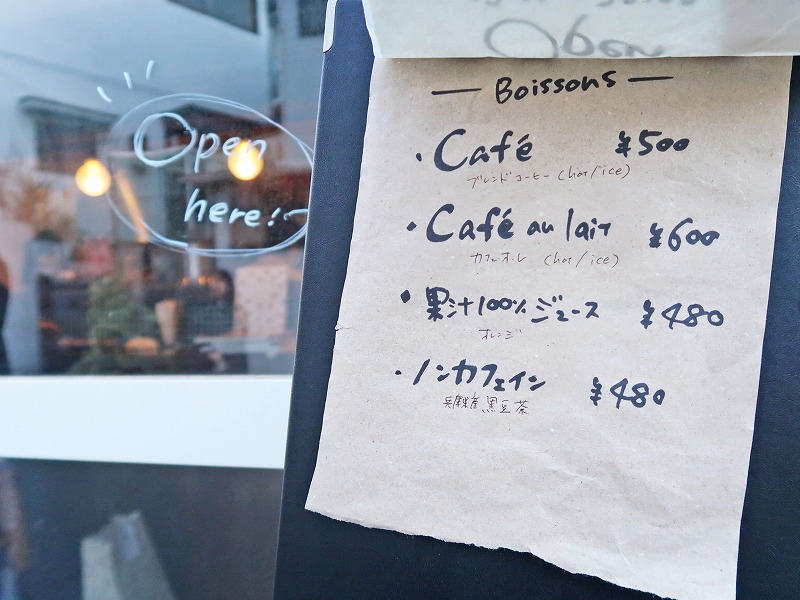 Open
here!
Open
Boissons
・Café ¥500
ブレンドコーヒー (hot/ice)
・Café au lait ¥600
カフェオーレ (hot/ice)
・果汁100%ジュース ¥480
オレンジ
・ノンカフェイン ¥480
兵庫県産黒豆茶